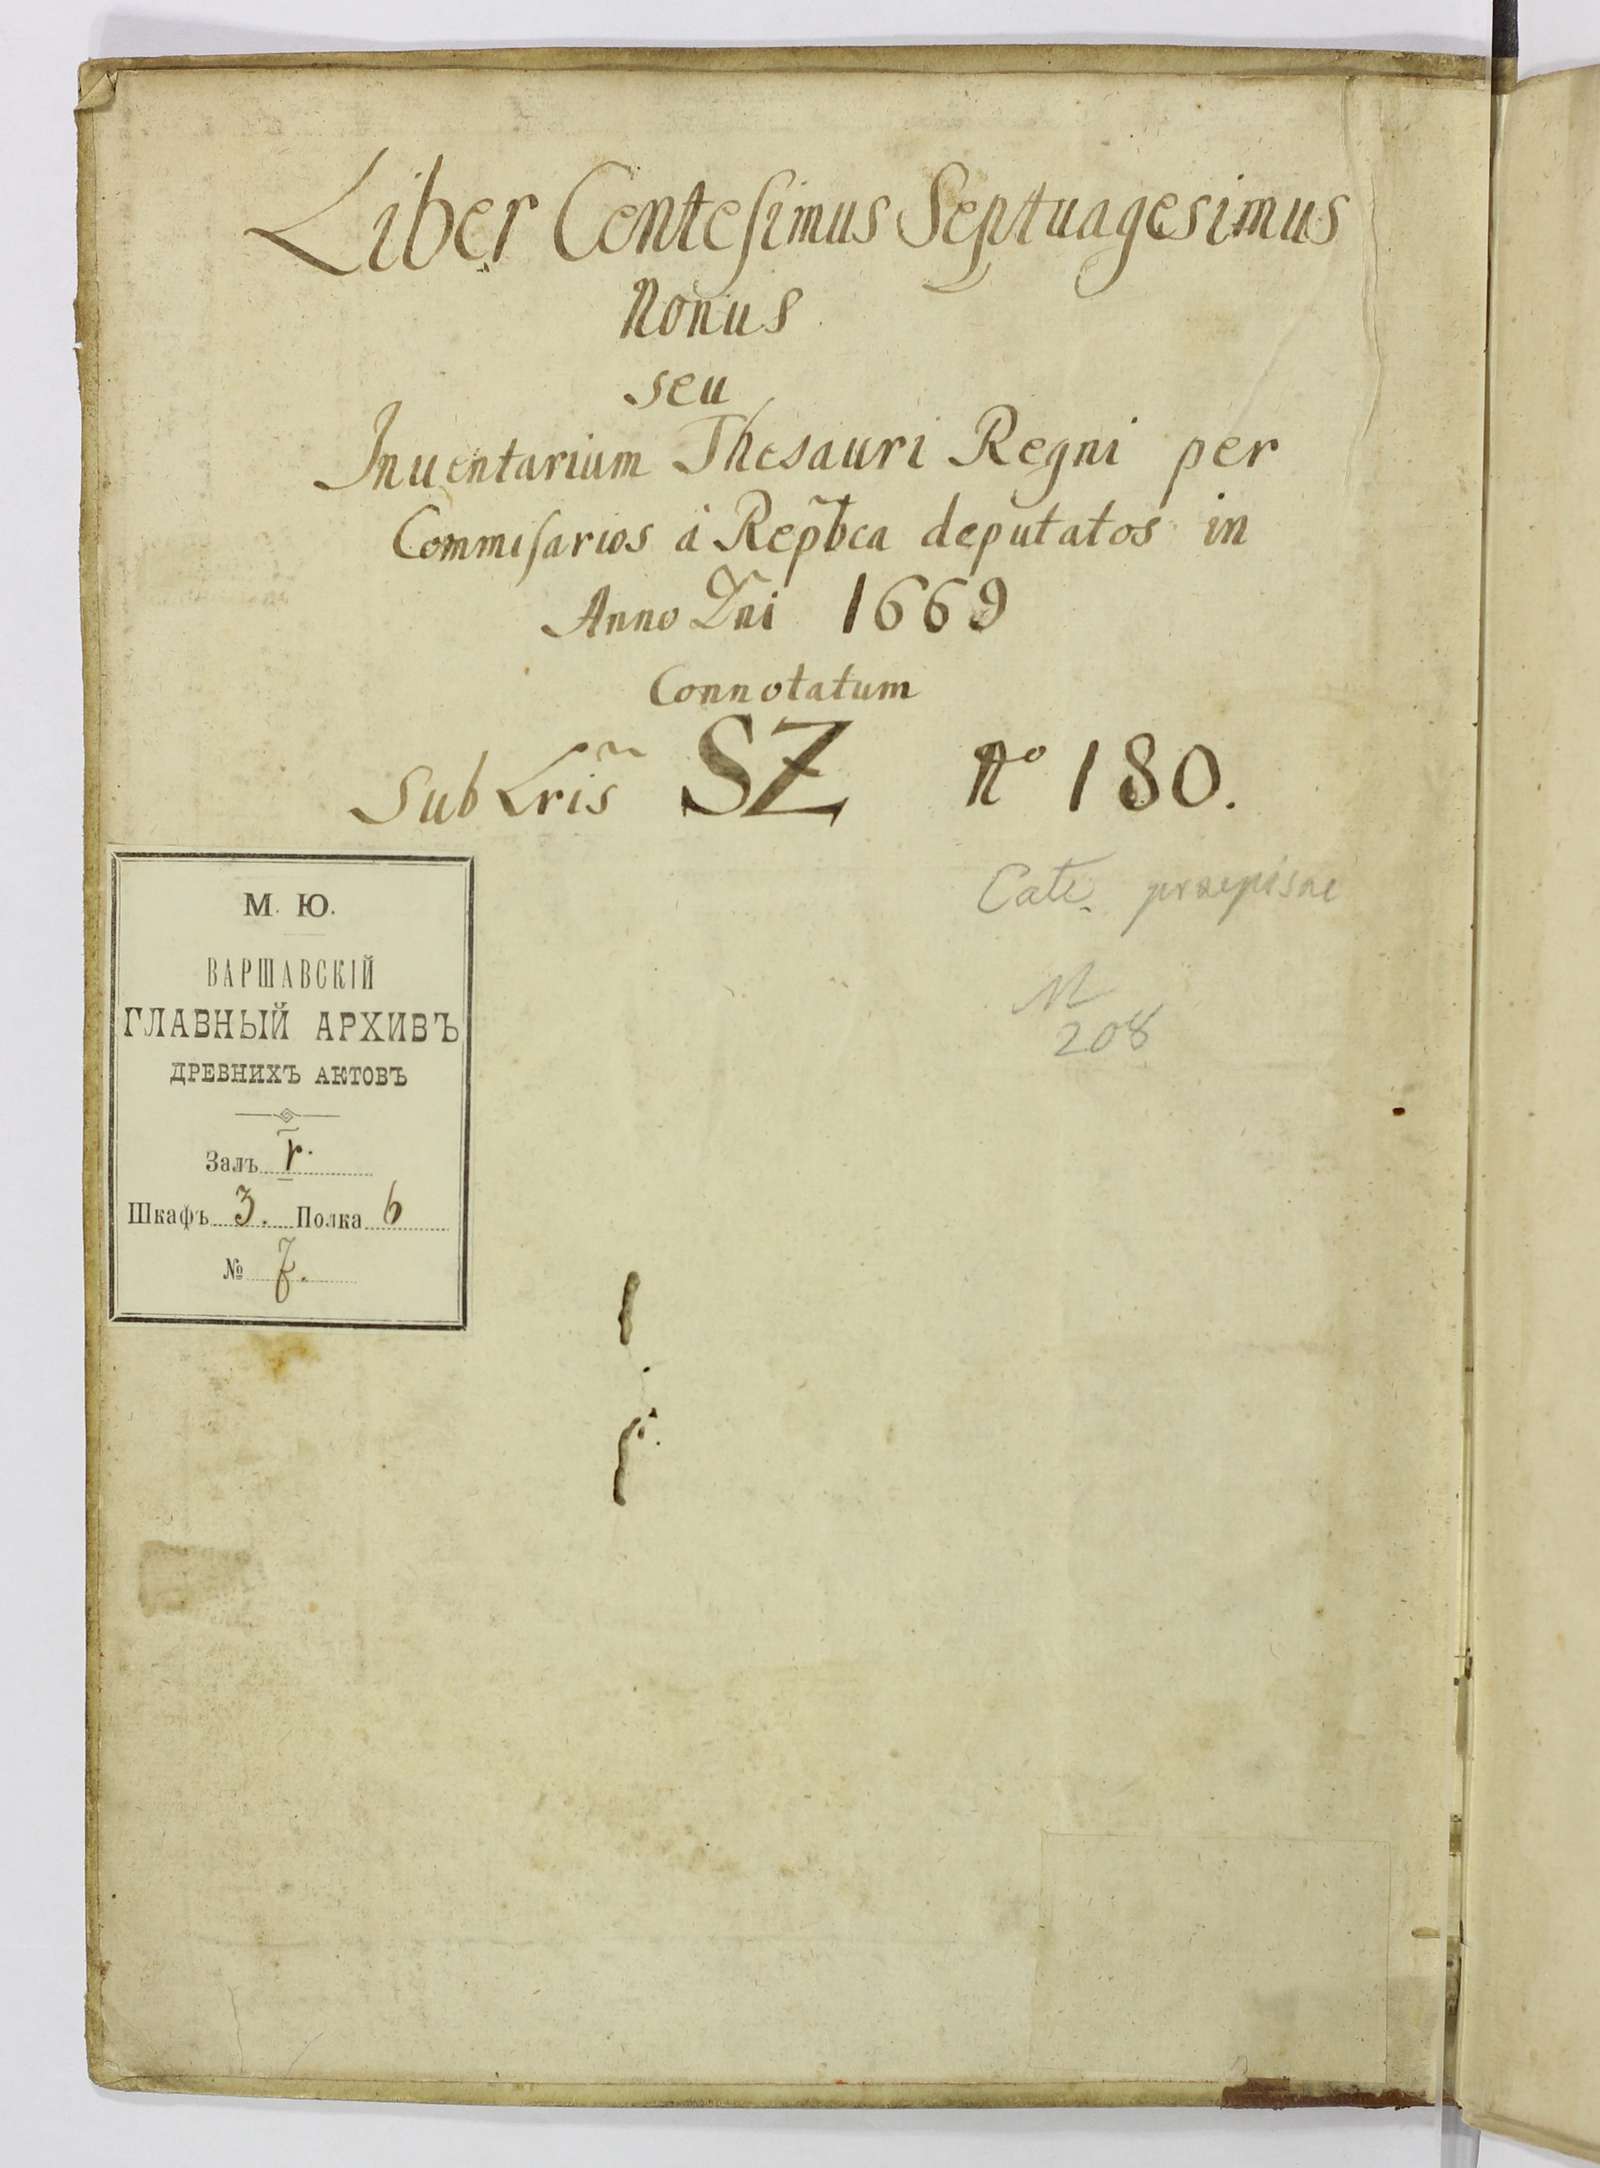 Liber Centesimus Septuagesimus
Nonus
seu
Inuentarium Thesauri Regni per
Commisarios á Rep̃bca deputatos in
Anno Dñi 1669
Connotatum
Sub Lris̃ SZ No 180.
М. Ю.
ВАРШАВСКІЙ
ГЛАВНЫЙ АРХИВЪ
ДРЕВНИХЪ АКТОВЪ
Залъ
Шкафъ 3. Полка 6
№
208